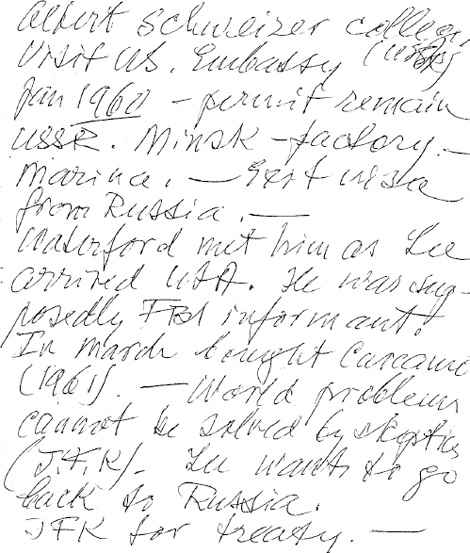 Albert Schweizer college.
Visit US. Embassy
Jan 1960 - permit remain
USSR. Minsk - factory. -
Marina. — Exit visa
from Russia. —
Waterford met him as Lee
arrived USA. He was sup-
posedly FBI informant!
In March bought Carcano
(1961). — World problems
cannot be solved by skeptics
(J.F.K). Lee wants to go
back to Russia.
JFK for treaty. —